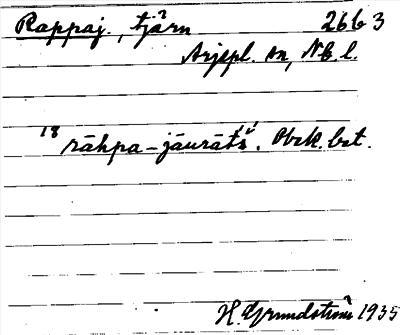 Rappaj., tjärn 2663
Arjepl. sn, Nb. l.
18 rāhpa-jāurāts̀. Obek. bet.
H. Grundström 1935